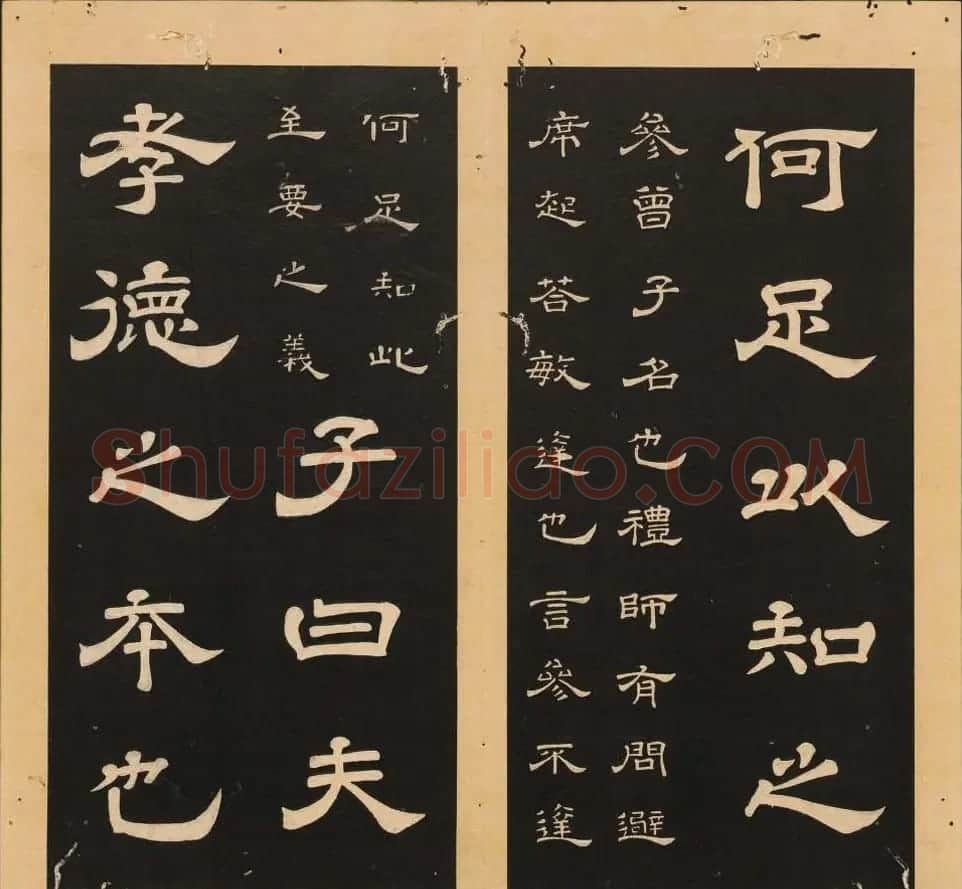 何足以知之
參曾子名也禮師有問避
席起荅敏達也言參不達
何足知此
至要之義
子曰夫
孝德之本也
Shufaziliao.COM